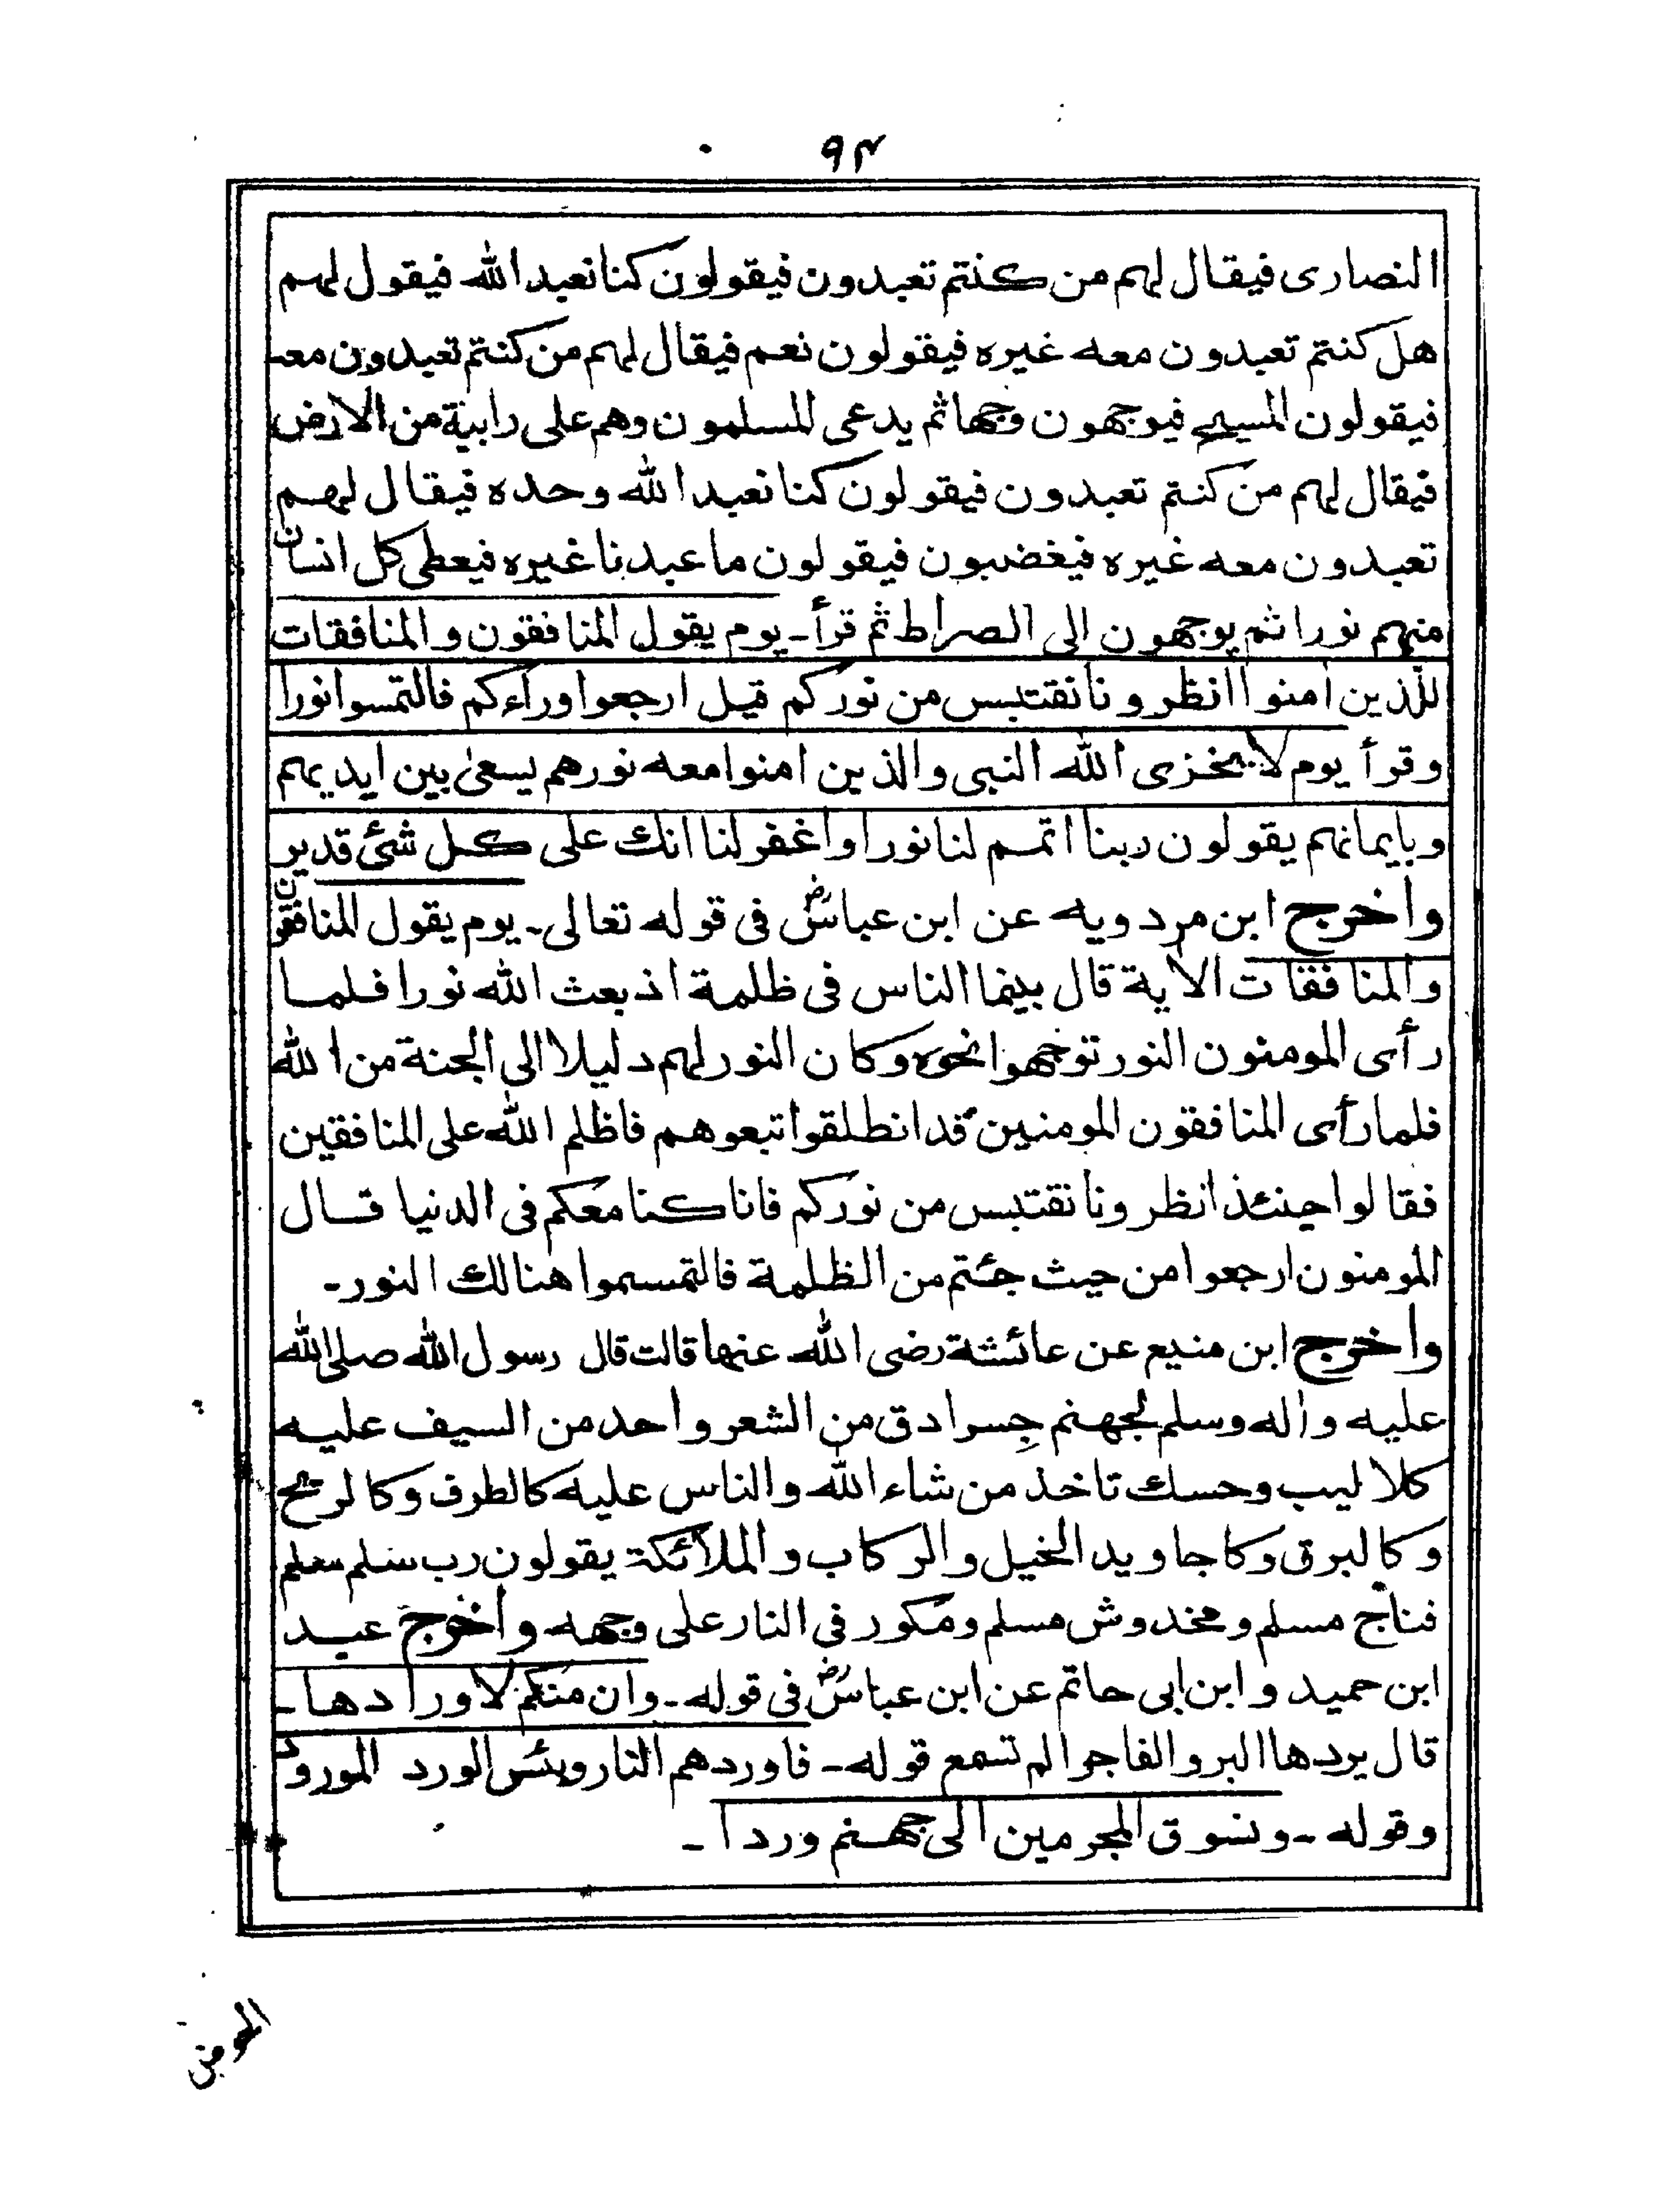 ٩٣
النصارى فيقال لهم من كنتم تعبدون فيقولون كنا نعبد الله فيقول لهم
هل كنتم تعبدون معه غيره فيقولون نعم فيقال لهم من كنتم تعبدون معه
فيقولون المسيح فيوجهون وجها ثم يدعى المسلمون وهم على رابية من الارض
فيقال لهم من كنتم تعبدون فيقولون كنا نعبد الله وحده فيقال لهم
تعبدون معه غيره فيغضبون فيقولون ما عبدنا غيره فيعطى كل انسان
منهم نورا ثم يوجهون الى الصراط ثم قرأ۔ يوم يقول المنافقون والمنافقات
للّذين امنوا انظرونا نقتبس من نوركم قيل ارجعوا وراءكم فالتمسوا نورا
وقرأ يوم لا يخزى الله النبى والذين امنوا معه نورهم يسعى بين ايديهم
وبايمانهم يقولون ربنا اتمم لنا نورا واغفر لنا انك على كل شئ قدير
واخرج ابن مردويه عن ابن عباسؓ فى قوله تعالى۔ يوم يقول المنافقون
والمنافقات الاية قال بينما الناس فى ظلمة اذ بعث الله نورا فلما
رأى المومنون النور توجهوا نحوه وكان النور لهم دليلا الى الجنة من الله
فلما رأى المنافقون المومنين قد انطلقوا تبعوهم فاظلم الله على المنافقين
فقالوا حينئذ انظرونا نقتبس من نوركم فانا كنا معكم فى الدنيا قال
المومنون ارجعوا من حيث جئتم من الظلمة فالتمسموا هنالك النور۔
واخرج ابن منيع عن عائشة رضى الله عنها قالت قال رسول الله صلى الله
عليه واله وسلم لجهنم جِسر ادق من الشعر واحد من السيف عليه
كلاليب وحسك تاخذ من شاء الله والناس عليه كالطرف وكالريح
وكالبرق وكاجاويد الخيل والركاب والملائكة يقولون رب سلم سلم
فناج مسلم ومخدوش مسلم ومكور فى النار على وجهه واخرج عبد
ابن حميد وابن ابى حاتم عن ابن عباسؓ فى قوله۔ وان منكم لا واردها۔
قال يردها البر والفاجر الم تسمع قوله۔ فاوردهم النار وبئس الورد المورود
وقوله۔ ونسوق المجرمين الى جهنم وردا۔